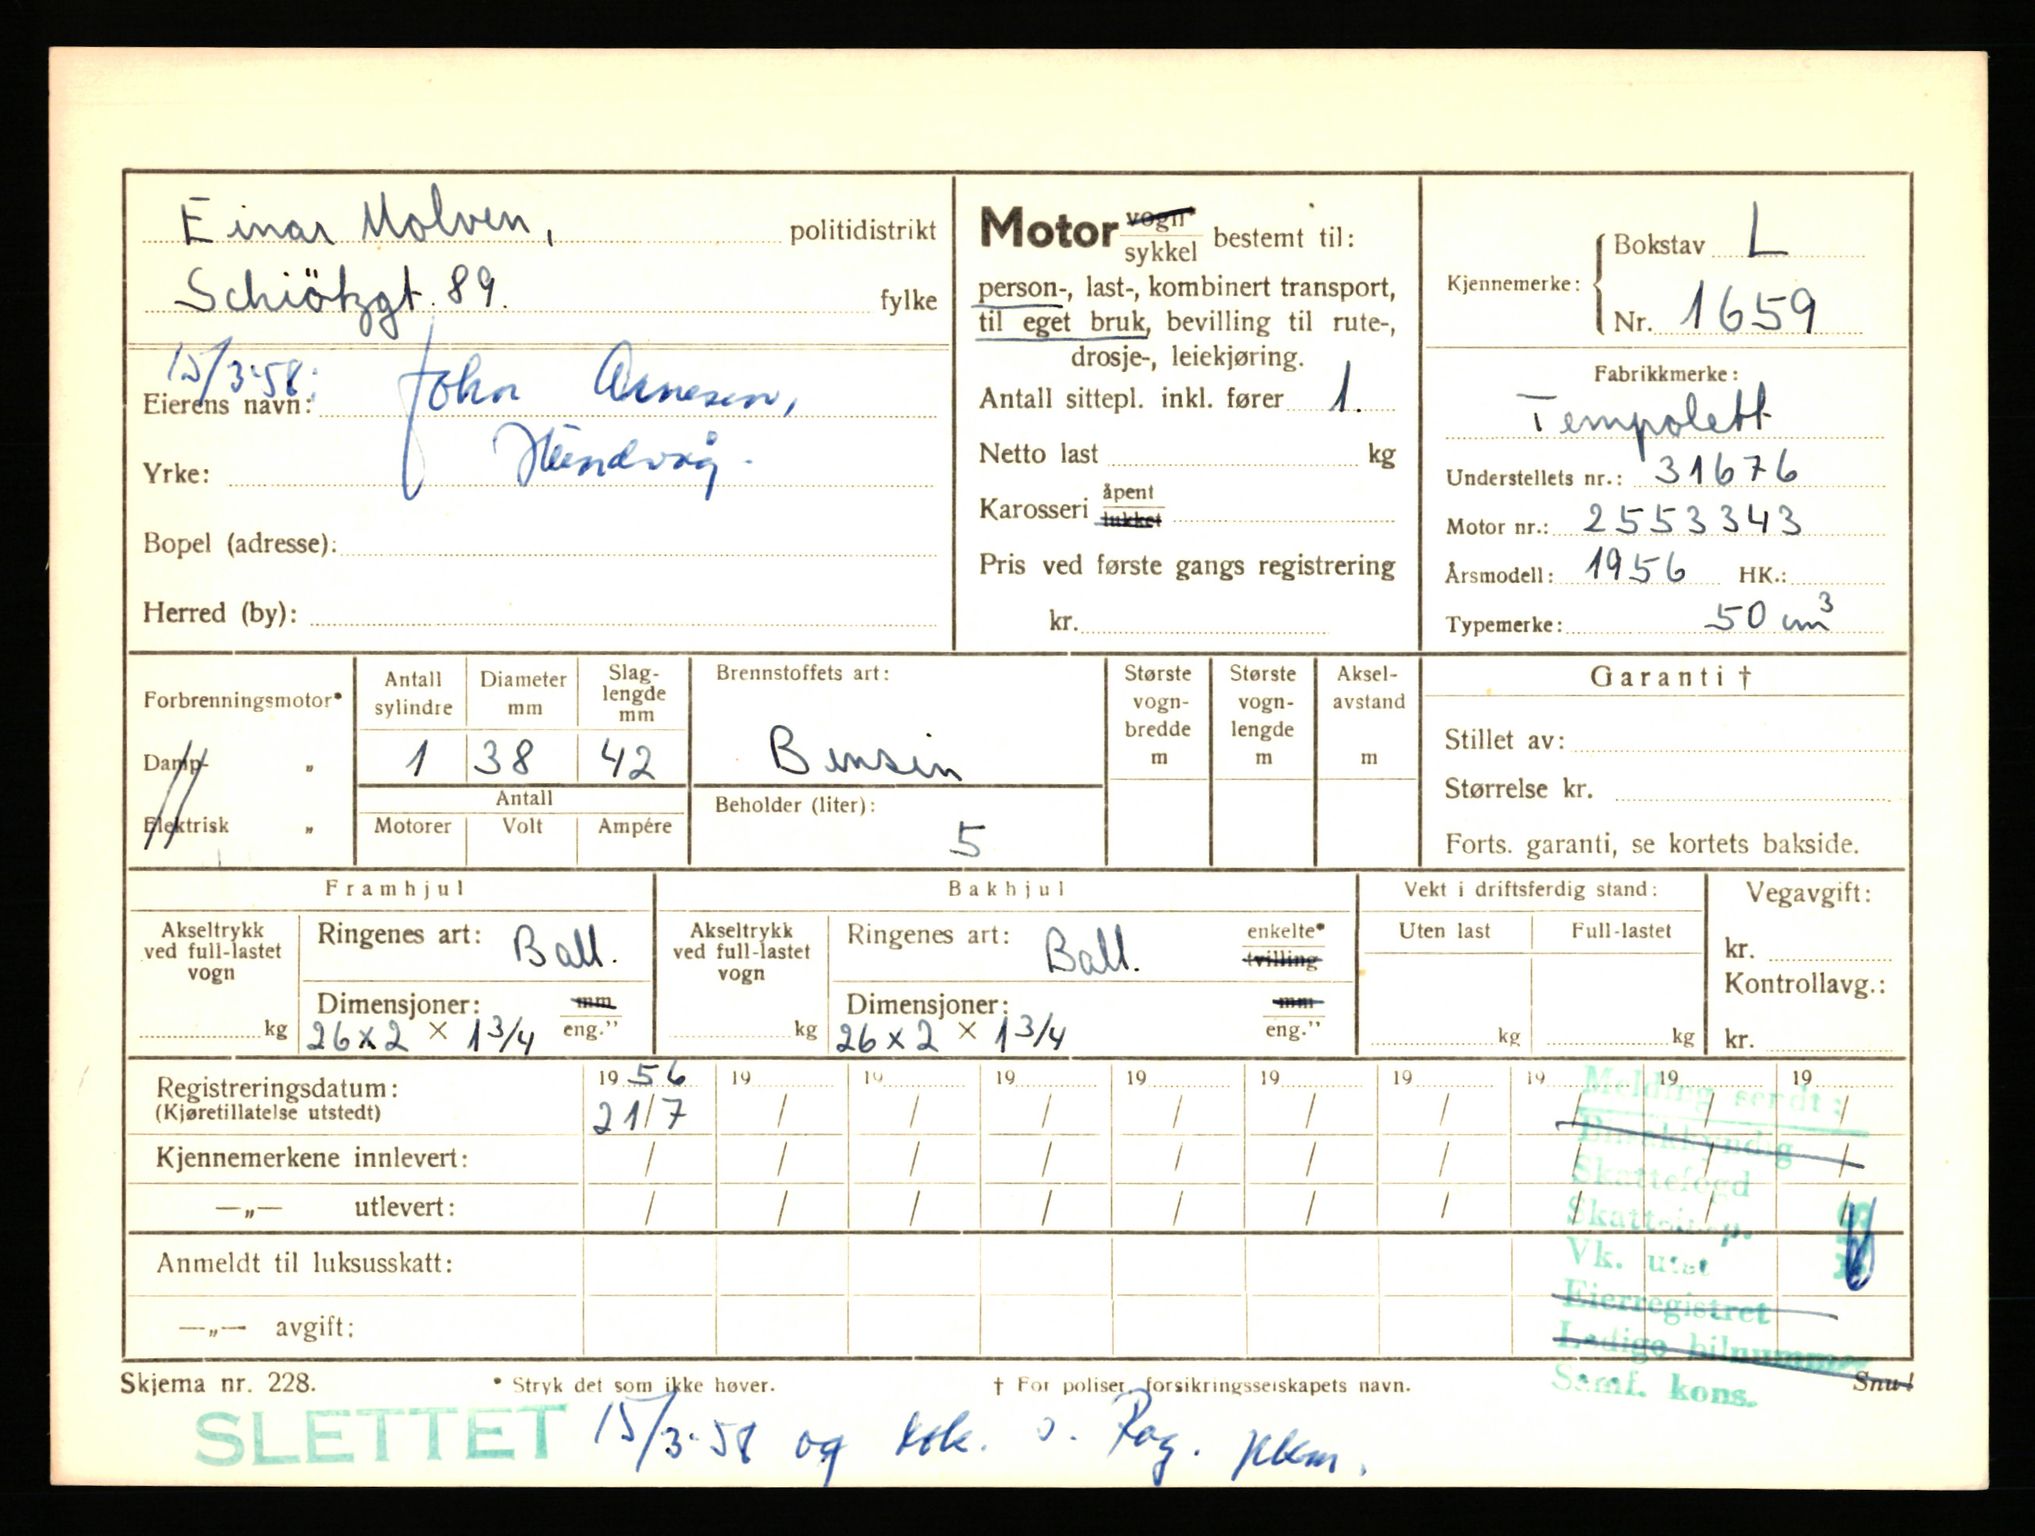 Einar Molven, politidistrikt
Schiötzgt. 89. fylke
15/3-58:
Eierens navn: John Arnesen,
Yrke: Hundvåg.
Bopel (adresse):
Herred (by):
Motor vogn* sykkel bestemt til:
person-, last-, kombinert transport,
til eget bruk, bevilling til rute-,
drosje-, leiekjøring.
Antall sittepl. inkl. fører 1.
Netto last kg
Karosseri åpent lukket
Pris ved første gangs registrering
kr.
Kjennemerke: Bokstav L
Nr. 1659
Fabrikkmerke:
Tempolett
Understellets nr.: 31676
Motor nr.: 2553343
Årsmodell: 1956 HK.:
Typemerke: 50 cm³
Forbrenningsmotor*
Damp- „
Elektrisk „
Antall sylindre
Diameter mm
Slag-lengde mm
1 38 42
Antall
Motorer Volt Ampére
Brennstoffets art:
Bensin
Beholder (liter):
5
Største vogn-bredde m
Største vogn-lengde m
Aksel-avstand m
Garanti †
Stillet av:
Størrelse kr.
Forts. garanti, se kortets bakside.
Framhjul
Akseltrykk ved full-lastet vogn
kg
Ringenes art: Ball.
Dimensjoner: mm eng."
26 x 2 x 1 3/4
Bakhjul
Akseltrykk ved full-lastet vogn
kg
Ringenes art: Ball. enkelte* tvilling
Dimensjoner: mm eng."
26 x 2 x 1 3/4
Vekt i driftsferdig stand:
Uten last Full-lastet
kg kg
Vegavgift:
kr.
Kontrollavg.:
kr.
Registreringsdatum: 19 56 19 19 19 19 19 19 19 19 19
(Kjøretillatelse utstedt) 21/7 / / / / / / / / /
Kjennemerkene innlevert: / / / / / / / / / /
—„— utlevert: / / / / / / / / / /
Anmeldt til luksusskatt:
—„— avgift:
Melding sendt:
Skattefogd
Skatteinsp.
Vk. utst
Eierregistret
Ledige bilnummer
Samf. kons.
Skjema nr. 228.
* Stryk det som ikke høver.
† For poliser, forsikringsselskapets navn.
Snu!
SLETTET 15/3-58 og s. Rog.